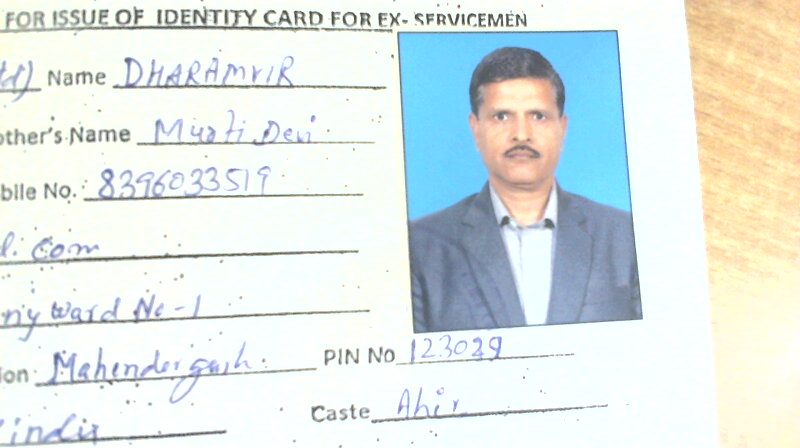 FOR ISSUE OF IDENTITY CARD FOR EX- SERVICEMEN
Name DHARAMVIR
other's Name Murti Devi
bile No. 8396033519
l. com
ny ward No-1
ion Mahendergarh PIN No 123029
Hindu Caste Ahir